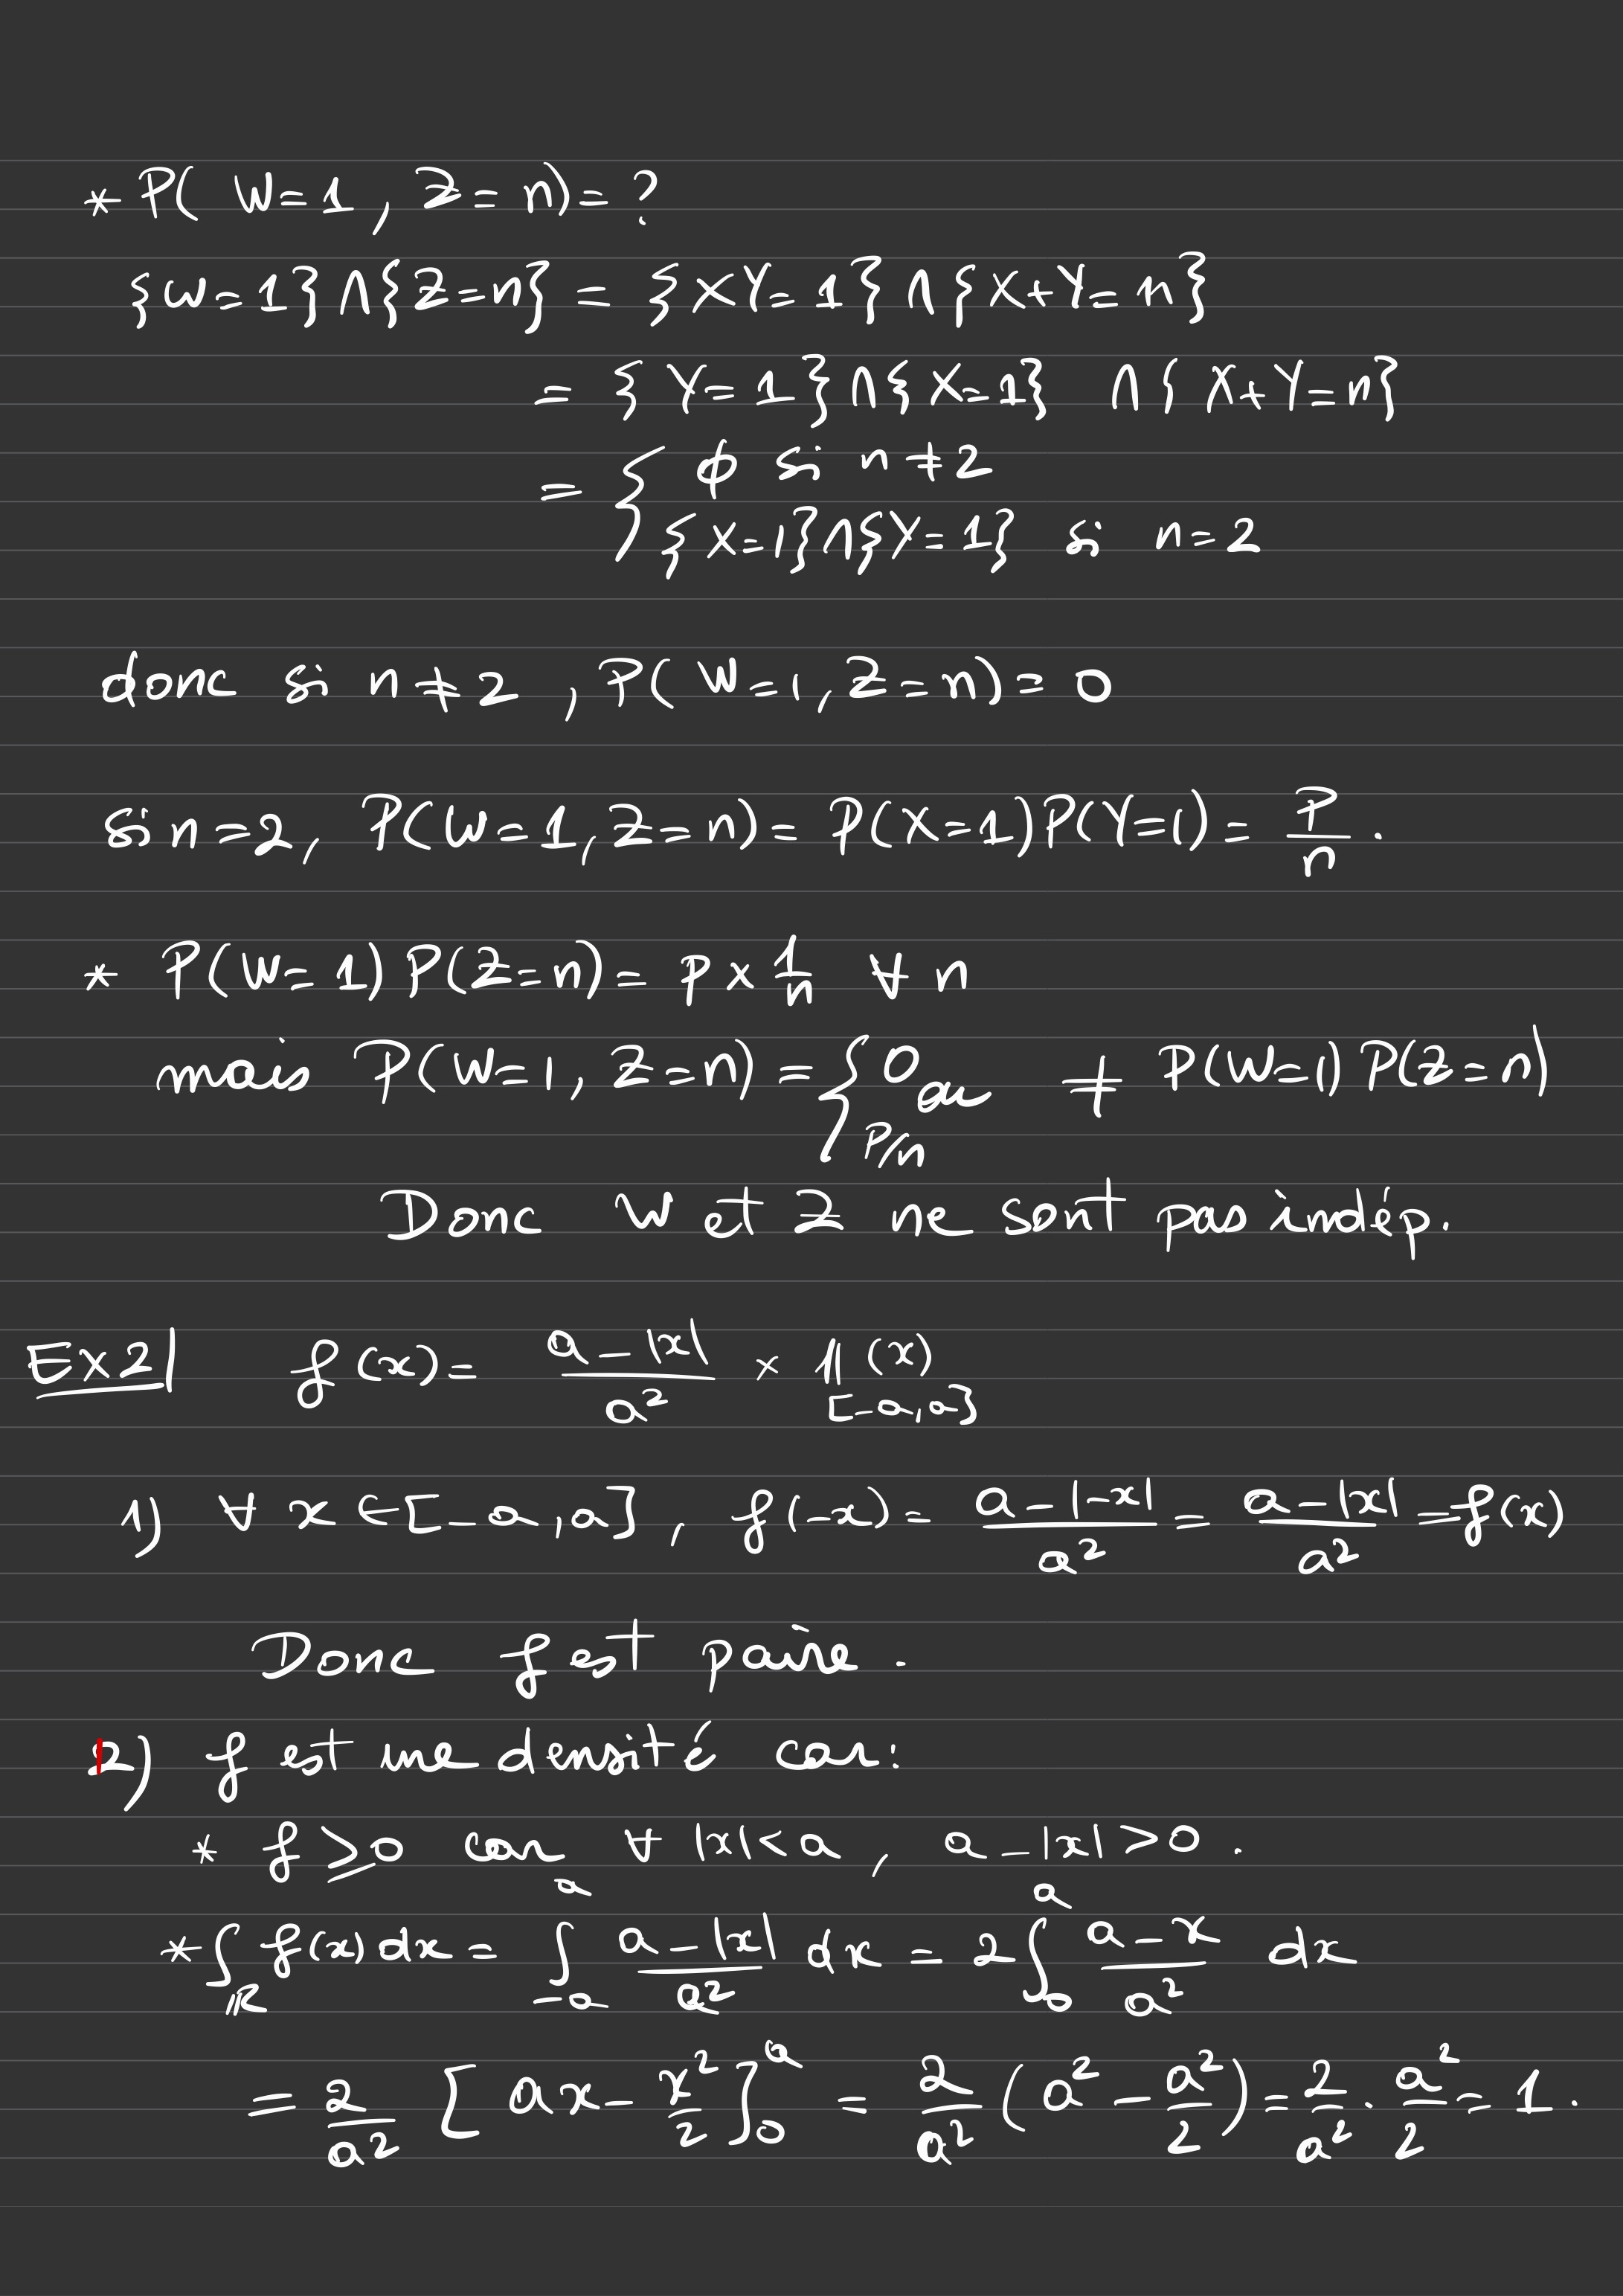 * P( W=1 , Z=n)= ?
{W=1}∩{Z=n} = {XY=1}∩{X+Y=n}
= {Y=1}∩{X=1} ∩{X+Y=n}
= { ϕ si n≠2
{X=1}∩{Y=1} si n=2
donc si n≠2 , P(W=1, Z=n)=0
si n=2, P(W=1, Z=n)= P(X=1)P(Y=1) = P/n .
* P(W=1) P(Z=n)= p × 1/n ∀ n
mais P(W=1, Z=n) = { 0 ou P/n ≠ P(W=1)P(Z=n)
Donc W et Z ne sont pas indép.
Ex2| f(x)= (a-|x|)/a² × 𝟙_[-a,a] (x)
1) ∀ x ∈[-a, a] , f(-x)= (a-|-x|)/a² = (a-|x|)/a² = f(x)
Donc f est paire .
2) f est une densité car:
* f ⩾0 car ∀ |x|<a , a-|x|>0 .
* ∫_ℝ f(x) dx = ∫_{-a}^{a} (a-|x|)/a² dx = 2∫_0^a (a-x)/a² dx
= 2/a² [ax - x²/2]_0^a = 2/a² (a² - a²/2) = 2/a² · a²/2 = 1 .